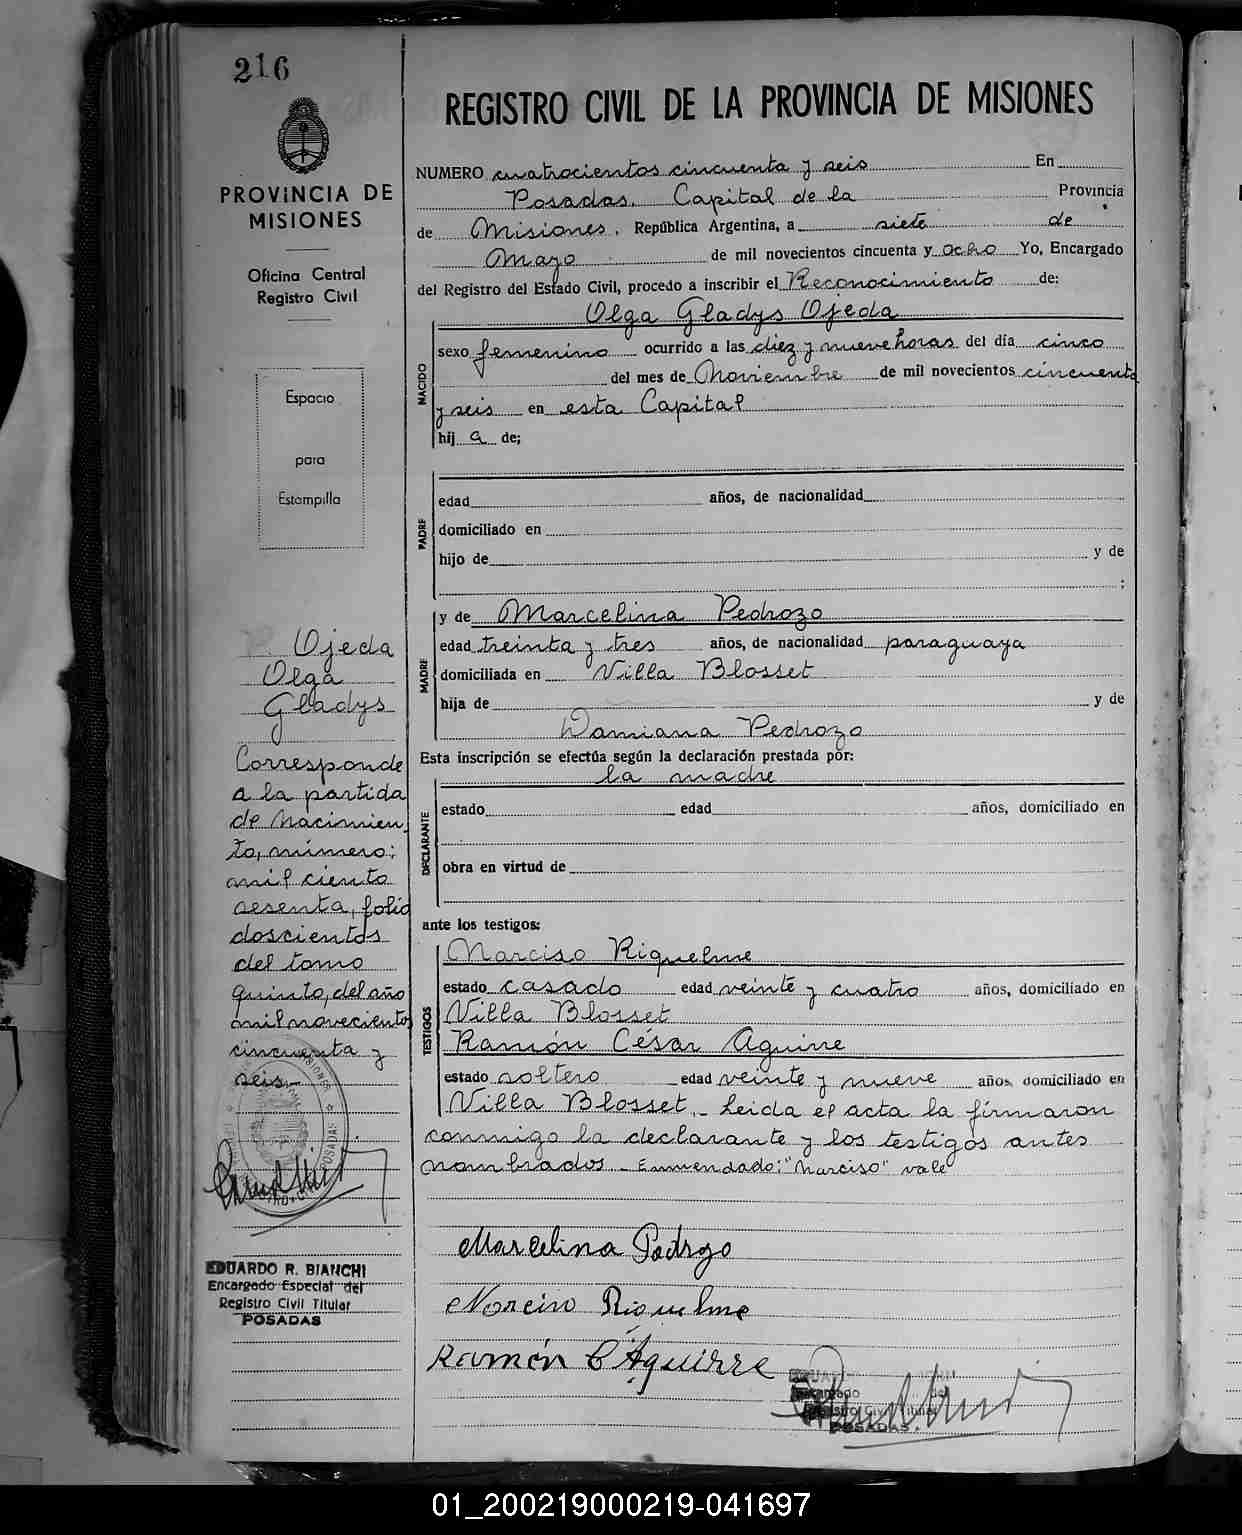 216
PROVINCIA DE
MISIONES
Oficina Central
Registro Civil
Espacio
para
Estampilla
Ojeda
Olga
Gladys
Corresponde
a la partida
de Nacimien
to, número:
mil ciento
sesenta, folio
doscientos
del tomo
quinto, del año
mil novecientos
cincuenta y
seis.-
EDUARDO R. BIANCHI
Encargado Especial del
Registro Civil Titular
POSADAS
REGISTRO CIVIL DE LA PROVINCIA DE MISIONES
NUMERO cuatrocientos cincuenta y seis En
Posadas. Capital de la Provincia
de Misiones. República Argentina, a siete de
Mayo de mil novecientos cincuenta y ocho Yo, Encargado
del Registro del Estado Civil, procedo a inscribir el Reconocimiento de:
Olga Gladys Ojeda
NACIDO
sexo femenino ocurrido a las diez y nueve horas del día cinco
del mes de Noviembre de mil novecientos cincuenta
y seis en esta Capital
hij a de;
PADRE
edad años, de nacionalidad
domiciliado en
hijo de y de
;
MADRE
y de Marcelina Pedrozo
edad treinta y tres años, de nacionalidad paraguaya
domiciliada en Villa Blosset
hija de y de
Damiana Pedrozo
Esta inscripción se efectúa según la declaración prestada por:
la madre
DECLARANTE
estado edad años, domiciliado en
obra en virtud de
ante los testigos:
TESTIGOS
Narciso Riquelme
estado casado edad veinte y cuatro años, domiciliado en
Villa Blosset
Ramón César Aguirre
estado soltero edad veinte y nueve años, domiciliado en
Villa Blosset.- Leida el acta la firmaron
conmigo la declarante y los testigos antes
nombrados - Enmendado: "Narciso" vale
Marcelina Pedrozo
Narciso Riquelme
Ramón C Aguirre
POSADAS.
01_200219000219-041697